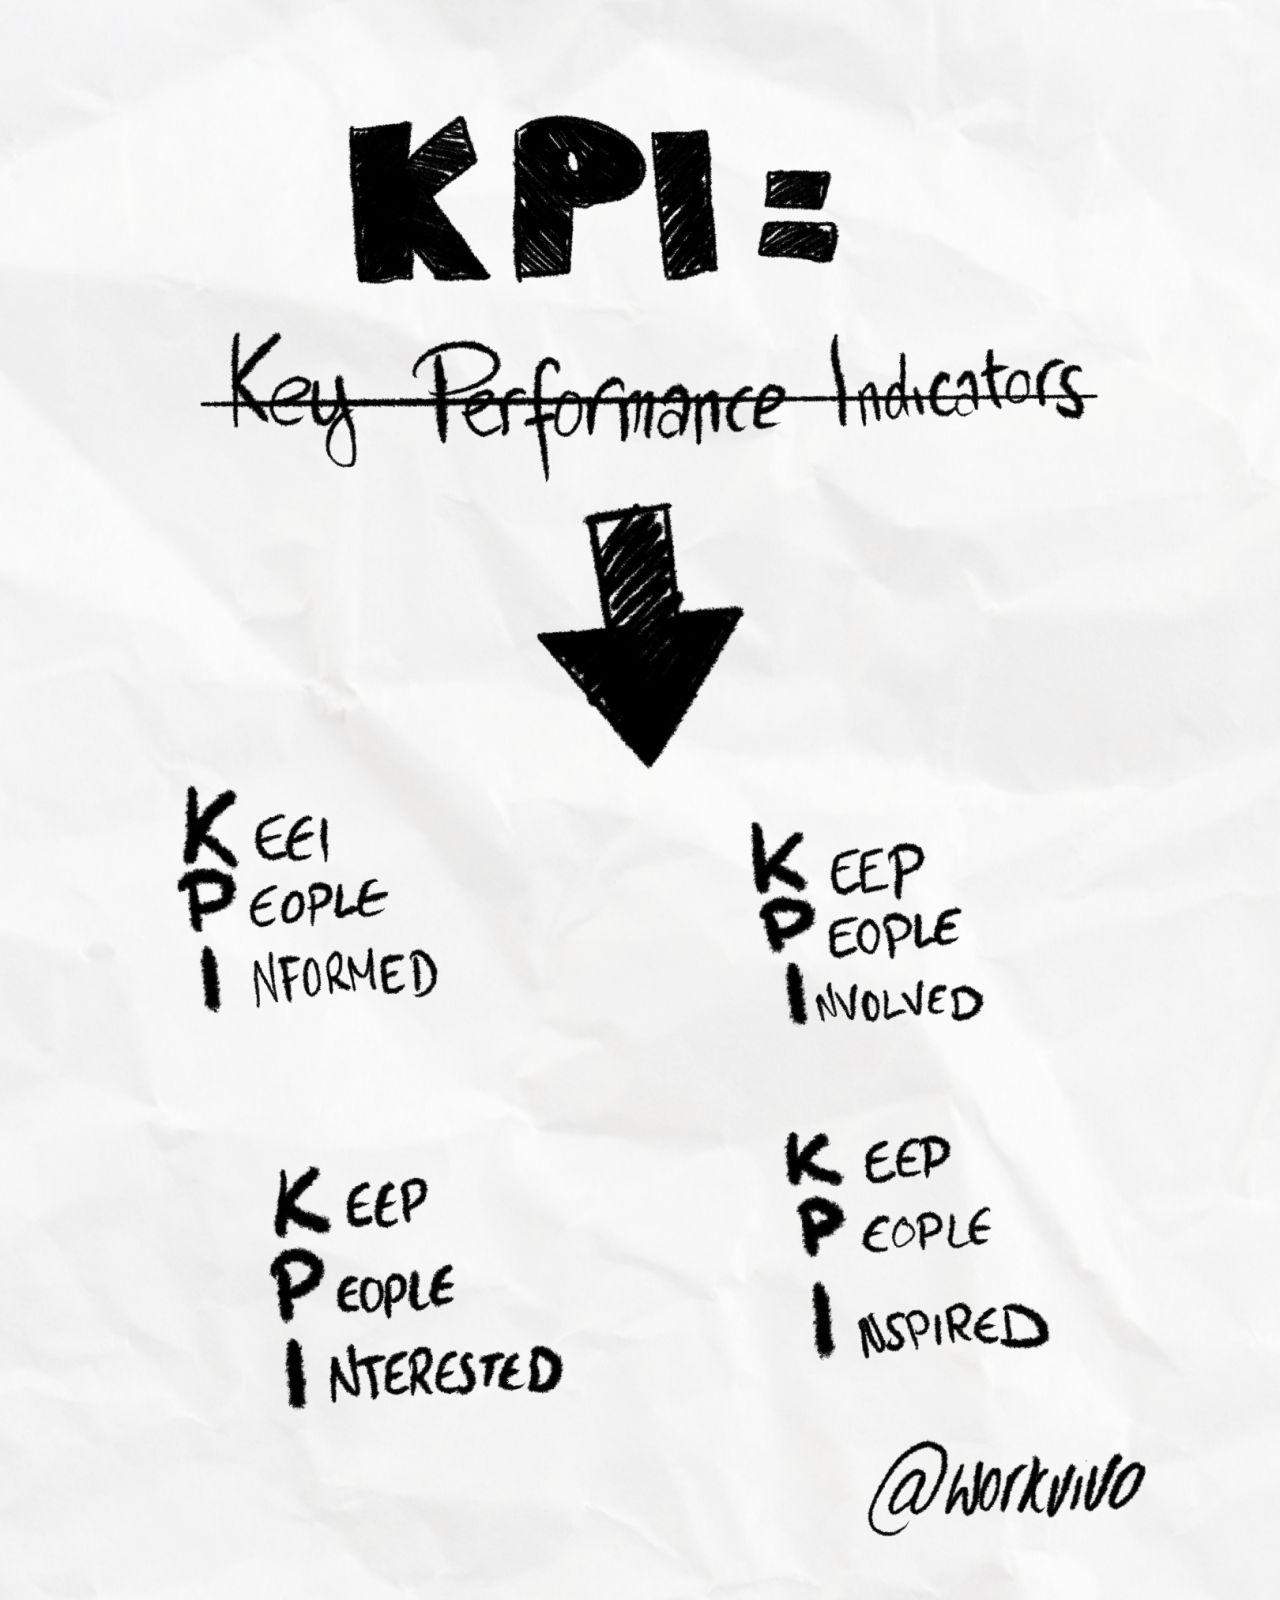 KPI =
Key Performance Indicators
KEEI
PEOPLE
INFORMED
KEEP
PEOPLE
INVOLVED
KEEP
PEOPLE
INTERESTED
KEEP
PEOPLE
INSPIRED
@workvivo